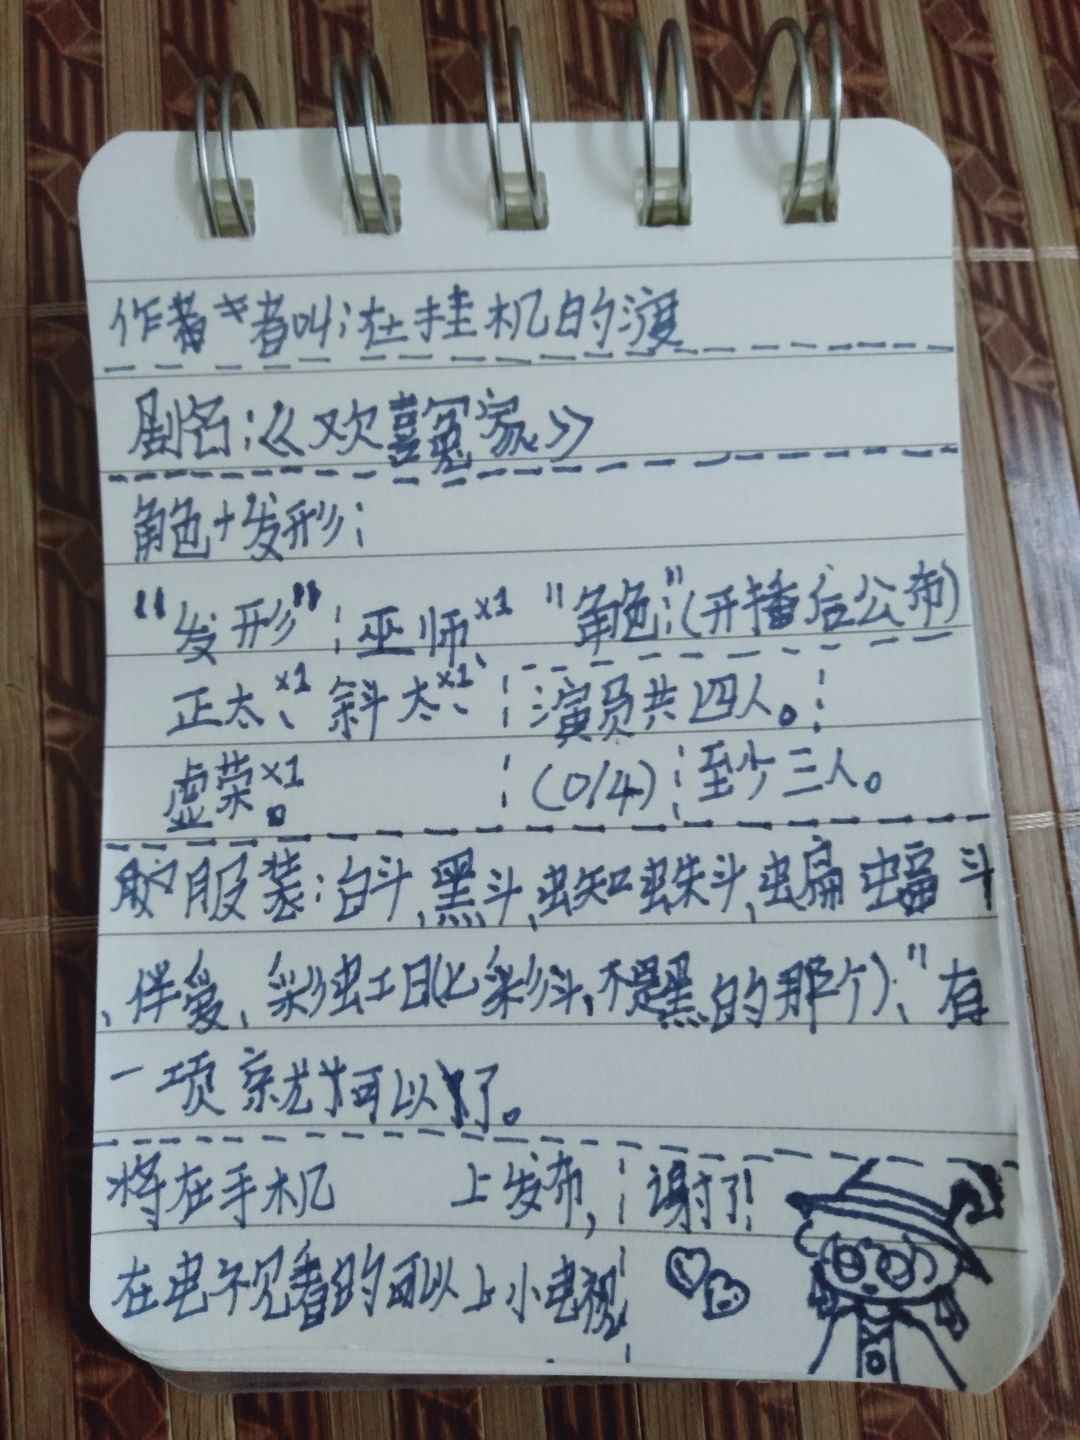 作者者叫:在挂机的渡
剧名:《欢喜冤家》
角色+发形:
“发形”:巫师x1、 "角色":(开播后公布)
正太x1、斜太x1、 演员共四人。
虚荣x1。 (0/4) 至少三人。
服装:白斗,黑斗,蜘蛛斗,蝙蝠斗
、伴爱、彩虹日(比彩斗,不是黑的那个)、"有
一项就可以了。
将在手机 上发布, 谢了!
在电视看的可以上小电视